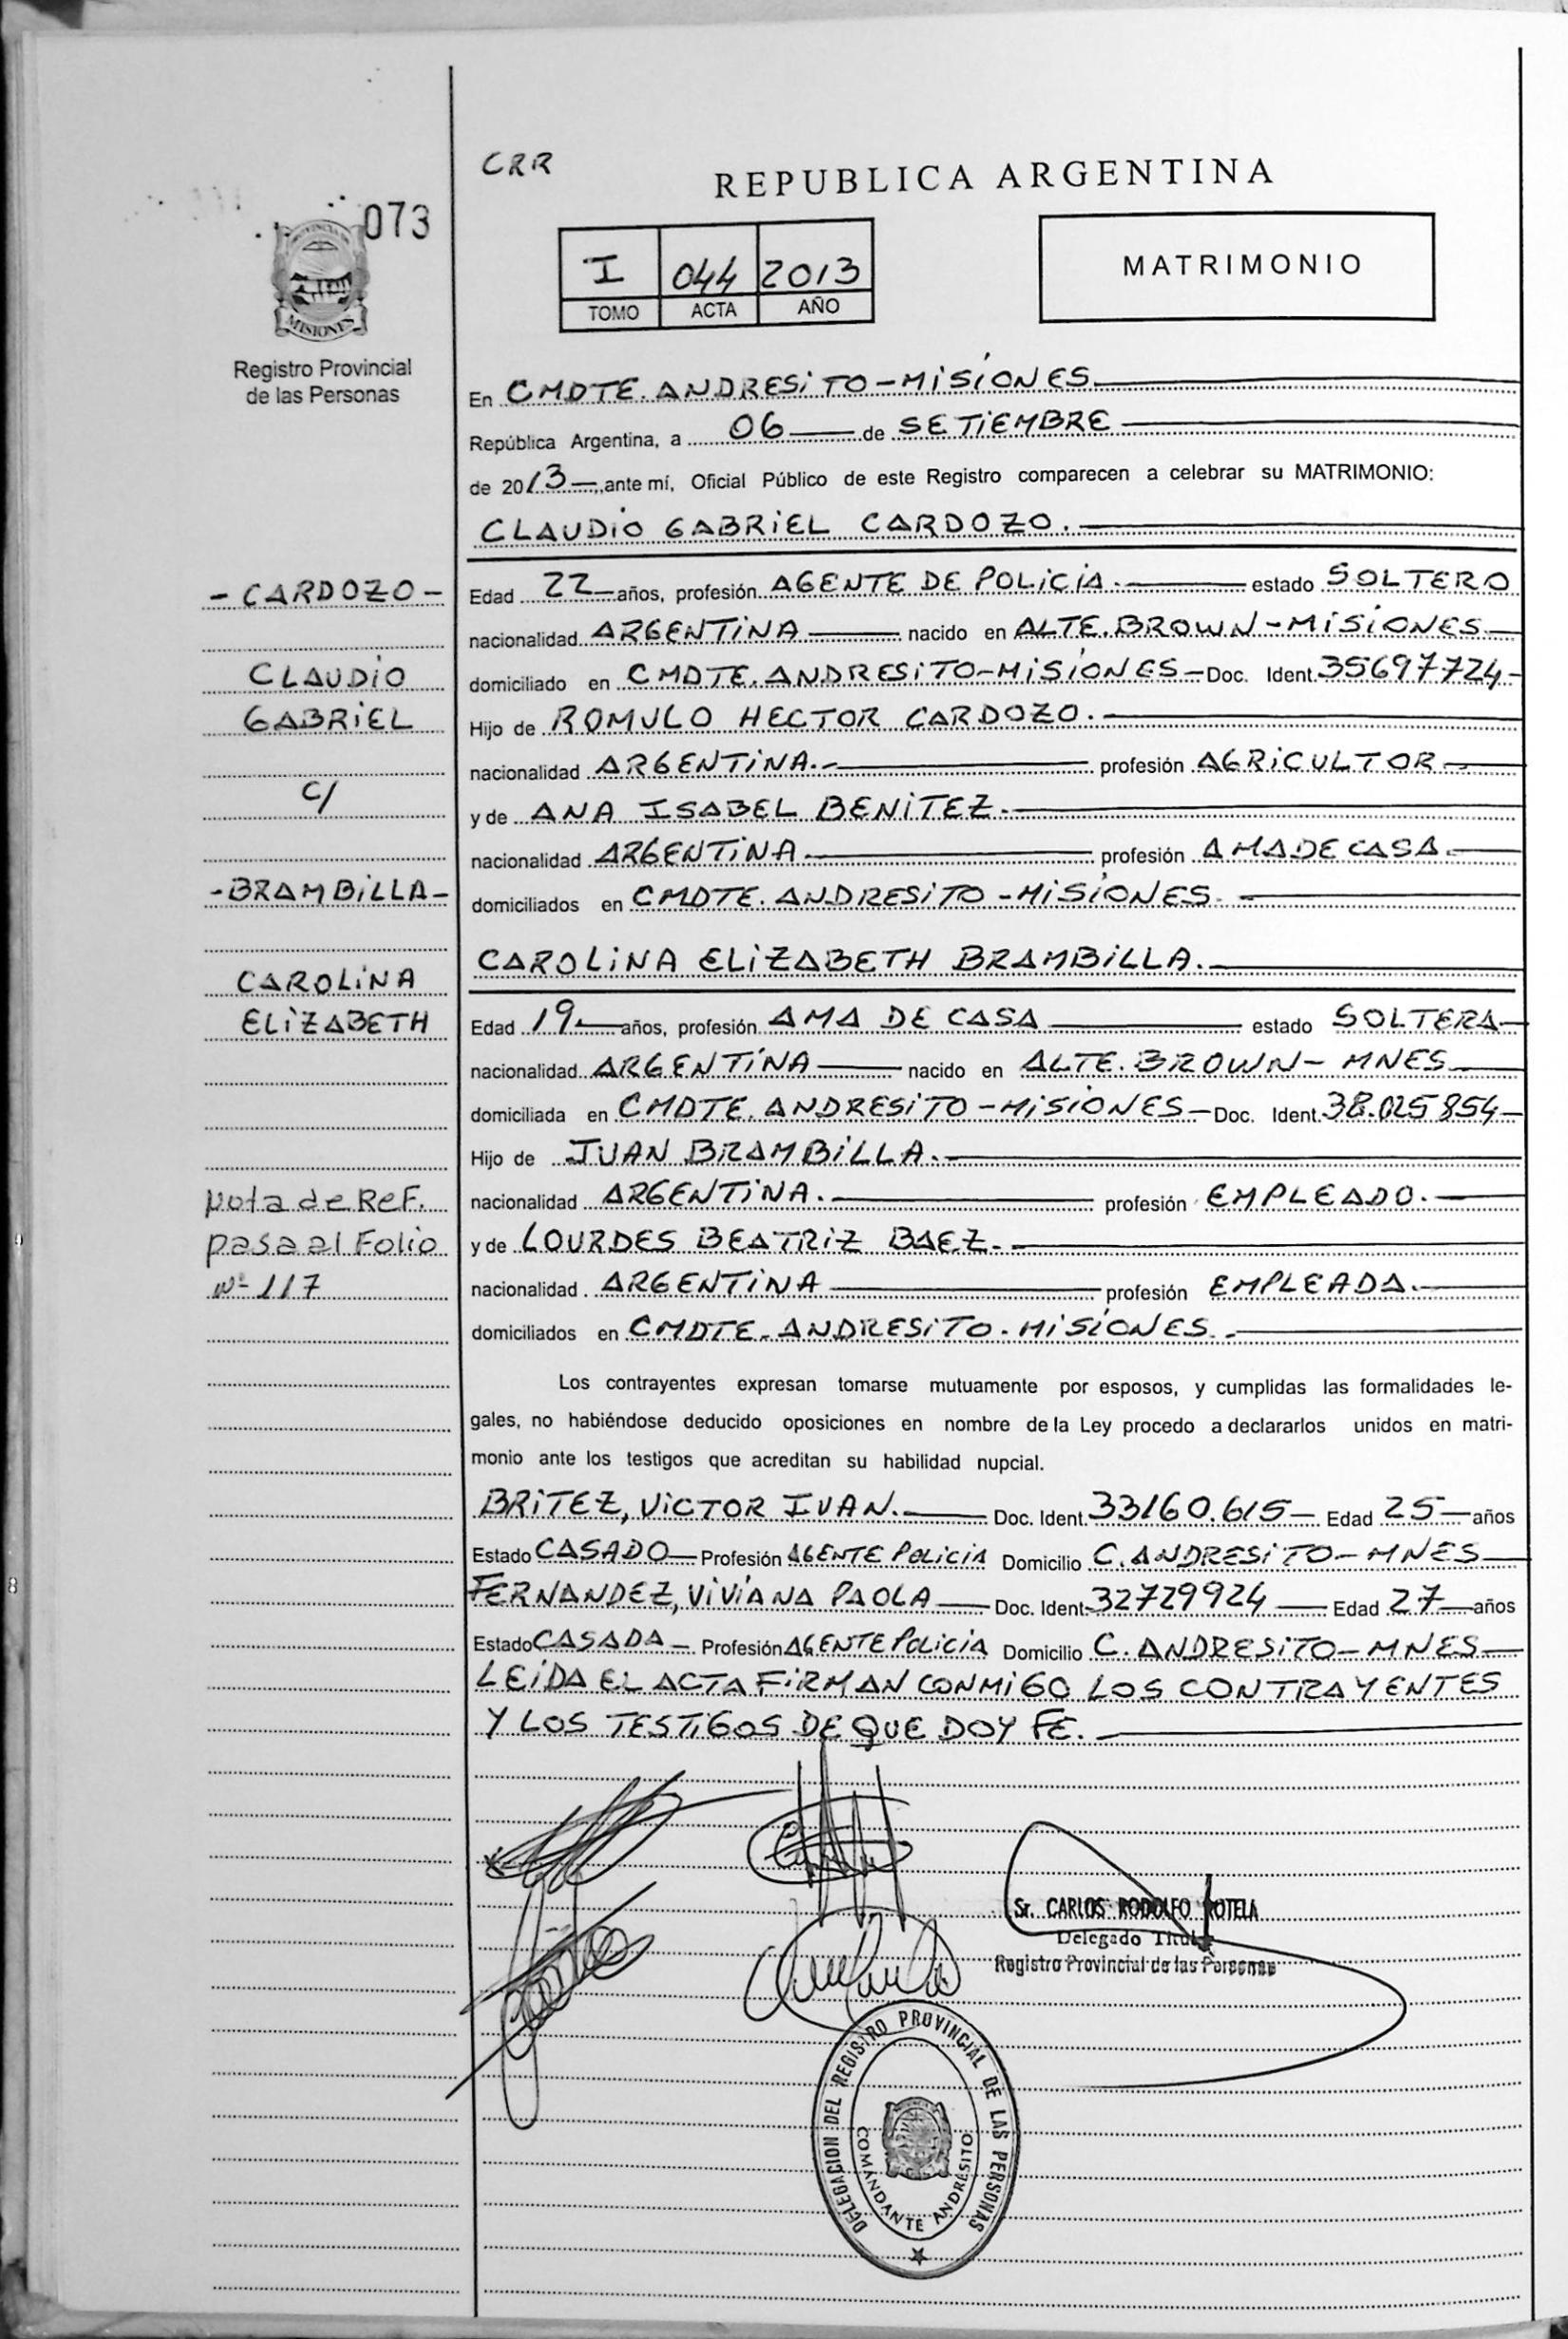 CRR
REPUBLICA ARGENTINA
073
PROVINCIA DE
MISIONES
Registro Provincial
de las Personas
I 044 2013
TOMO ACTA AÑO
MATRIMONIO
En CMDTE. ANDRESITO-MISIONES
República Argentina, a 06 de SETIEMBRE
de 2013, ante mí, Oficial Público de este Registro comparecen a celebrar su MATRIMONIO:
CLAUDIO GABRIEL CARDOZO.
- CARDOZO -
CLAUDIO
GABRIEL
C/
-BRAMBILLA-
CAROLINA
ELIZABETH
nota de REF.
pasa al Folio
Nº 117
Edad 22 años, profesión AGENTE DE POLICÍA. estado SOLTERO
nacionalidad ARGENTINA nacido en ALTE. BROWN-MISIONES
domiciliado en CMDTE. ANDRESITO-MISIONES - Doc. Ident. 35697724-
Hijo de ROMULO HECTOR CARDOZO.
nacionalidad ARGENTINA. profesión AGRICULTOR
y de ANA ISABEL BENITEZ.
nacionalidad ARGENTINA. profesión AMA DE CASA.
domiciliados en CMDTE. ANDRESITO-MISIONES.
CAROLINA ELIZABETH BRAMBILLA.
Edad 19 años, profesión AMA DE CASA estado SOLTERA
nacionalidad ARGENTINA nacido en ALTE. BROWN- MNES
domiciliada en CMDTE. ANDRESITO-MISIONES - Doc. Ident. 38.025854
Hijo de JUAN BRAMBILLA.
nacionalidad ARGENTINA. profesión EMPLEADO.
y de LOURDES BEATRIZ BAEZ.
nacionalidad ARGENTINA profesión EMPLEADA.
domiciliados en CMDTE. ANDRESITO-MISIONES.
Los contrayentes expresan tomarse mutuamente por esposos, y cumplidas las formalidades le-
gales, no habiéndose deducido oposiciones en nombre de la Ley procedo a declararlos unidos en matri-
monio ante los testigos que acreditan su habilidad nupcial.
BRITEZ, VICTOR IVAN. Doc. Ident. 33160.615 Edad 25 años
Estado CASADO Profesión AGENTE POLICIA Domicilio C. ANDRESITO-MNES
FERNANDEZ, VIVIANA PAOLA Doc. Ident. 32729924 Edad 27 años
Estado CASADA Profesión AGENTE POLICIA Domicilio C. ANDRESITO-MNES
LEIDA EL ACTA FIRMAN CONMIGO LOS CONTRAYENTES
Y LOS TESTIGOS DE QUE DOY FE.
Sr. CARLOS RODOLFO ROTELA
Delegado Titular
Registro Provincial de las Personas
DELEGACION DEL REGISTRO PROVINCIAL DE LAS PERSONAS
COMANDANTE ANDRESITO